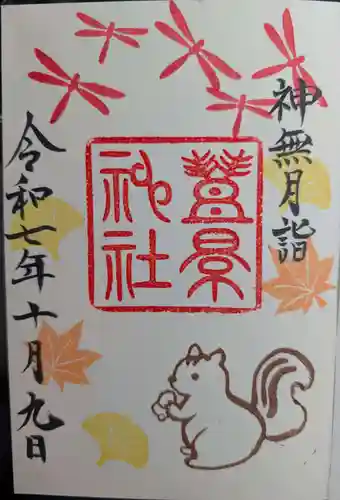 神無月詣
豊景
神社
令和七年十月九日